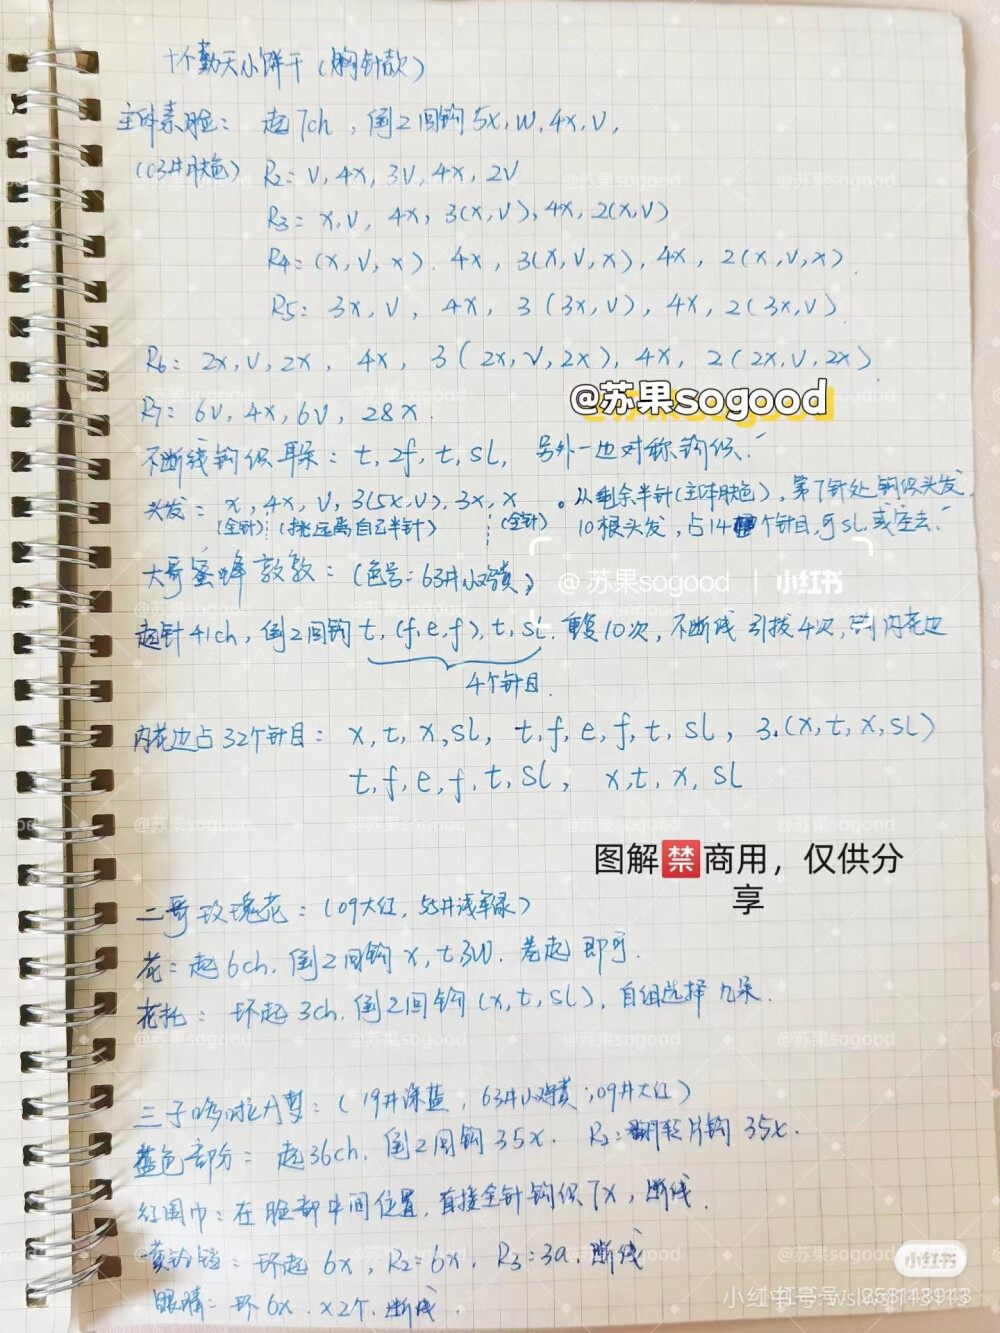 十个勤天小饼干（胸针款）
主体素脸：起7ch，倒2回钩5x，w，4x，v，
（03#肤色） R2：v，4x，3v，4x，2v
R3：x，v，4x，3(x，v)，4x，2(x，v)
R4：(x，v，x)．4x，3(x，v，x)，4x，2(x，v，x)．
R5：3x，v，4x，3(3x，v)，4x，2(3x，v)．
R6：2x，v，2x，4x，3(2x，v，2x)，4x，2(2x，v，2x)
@苏果sogood
R7：6v，4x，6v，28x．
不断线钩织耳朵：t，2f，t，sl，另外一边对称钩织．
头发：x，4x，v，3(5x，v)，3x，x。从剩余半针(主体肤色)，第7针处钩织头发，
(全针) (挑远离自己半针) (全针) 10根头发，占14个针目，可sl或空去．
大哥蜜蜂敦敦：(色号：63#小鸡黄)
@苏果sogood | 小红书
起针41ch，倒2回钩t，(f，e，f)，t，sl．重复10次，不断线引拔4次，钩内花边
4个针目．
内花边占32个针目：x，t，x，sl，t，f，e，f，t，sl，3．(x，t，x，sl)
t，f，e，f，t，sl，x，t，x，sl
图解禁商用，仅供分享
二哥玫瑰花：(09大红，55#浅军绿)
花：起6ch．倒2回钩x，t，3w．卷起即可．
花托：环起3ch．倒2回钩(x，t，sl)，自组选择几朵．
三子哆啦A梦：(19#深蓝，63#小鸡黄，09#大红)
蓝色部分：起36ch，倒2回钩35x．R2：翻转片钩35x．
红围巾：在脸部中间位置，直接全针钩织7x，断线．
黄铃铛：环起6x，R2=6x，R3=3a．断线
眼睛：环6x．x2个．断线．
小红书